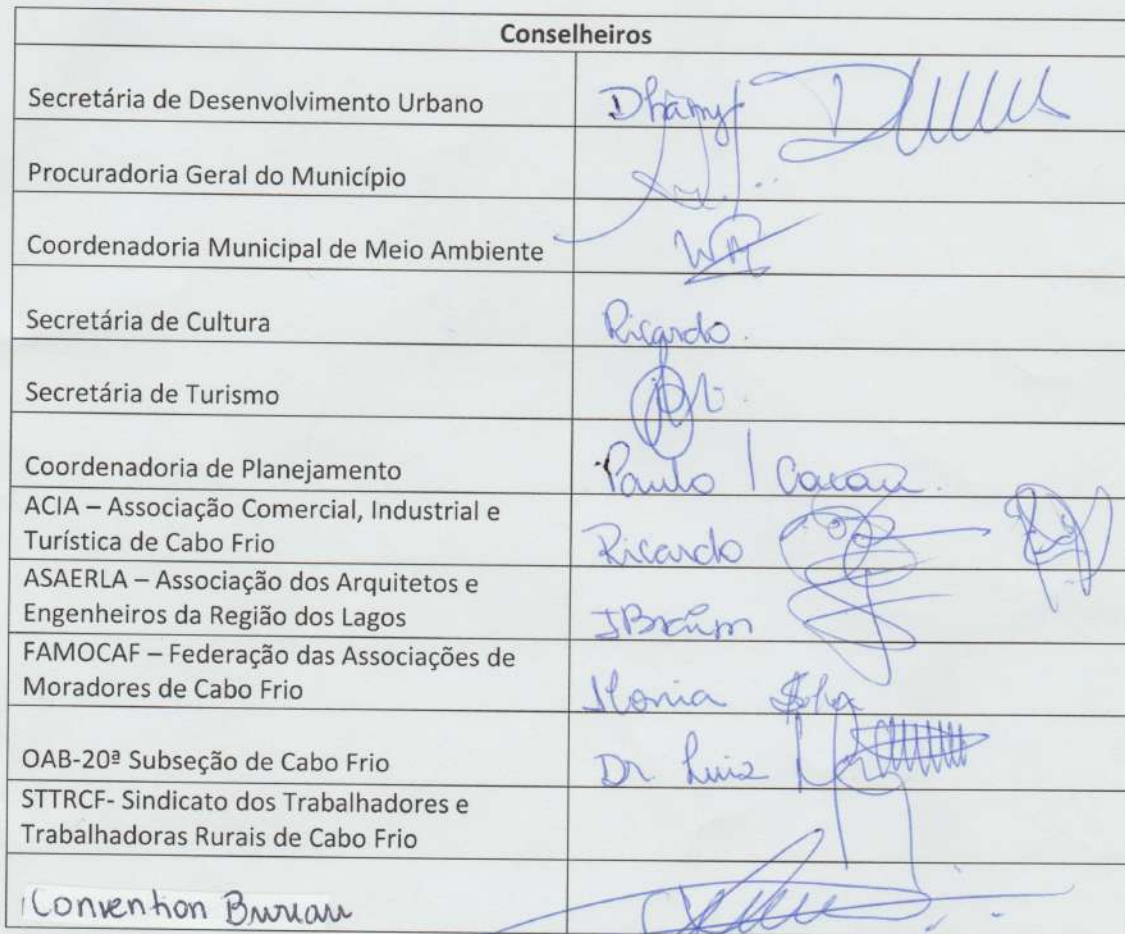 Conselheiros
Secretária de Desenvolvimento Urbano
Procuradoria Geral do Município
Coordenadoria Municipal de Meio Ambiente
Secretária de Cultura Ricardo.
Secretária de Turismo
Coordenadoria de Planejamento Paulo
ACIA – Associação Comercial, Industrial e
Turística de Cabo Frio Ricardo
ASAERLA – Associação dos Arquitetos e
Engenheiros da Região dos Lagos
FAMOCAF – Federação das Associações de
Moradores de Cabo Frio
OAB-20ª Subseção de Cabo Frio Dr Luiz
STTRCF- Sindicato dos Trabalhadores e
Trabalhadoras Rurais de Cabo Frio
Convention Bureau